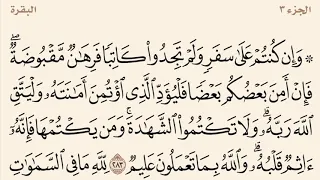 الجزء ٣ البقرة
۞ وَإِن كُنتُمْ عَلَىٰ سَفَرٍ وَلَمْ تَجِدُوا۟ كَاتِبًا فَرِهَـٰنٌ مَّقْبُوضَةٌ ۖ
فَإِنْ أَمِنَ بَعْضُكُم بَعْضًا فَلْيُؤَدِّ ٱلَّذِى ٱؤْتُمِنَ أَمَـٰنَتَهُۥ وَلْيَتَّقِ
ٱللَّهَ رَبَّهُۥ ۗ وَلَا تَكْتُمُوا۟ ٱلشَّهَـٰدَةَ ۚ وَمَن يَكْتُمْهَا فَإِنَّهُۥٓ
ءَاثِمٌ قَلْبُهُۥ ۗ وَٱللَّهُ بِمَا تَعْمَلُونَ عَلِيمٌ ٢٨٣ لِّلَّهِ مَا فِى ٱلسَّمَـٰوَٰتِ